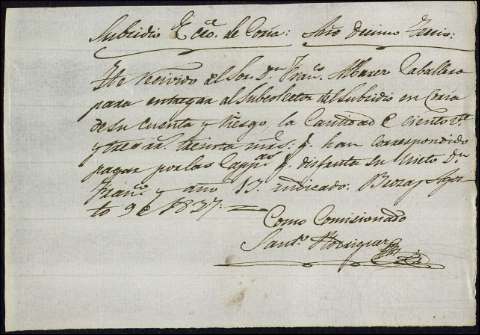 Subsidio Ecco. de Coria: Año decimo tercio:
He recivido del Sor. Dn. Franco. Alvarez Caballero
para entregar al Subcolector del Subsidio en Coria
de su cuenta y riesgo la Cantidad de ciento
y treinta mrs. q. han correspondido
pagar por las Capps. q. disfruta su Nieto Dn.
Franco. y año 13. indicado: Brozas Agos-
to 9 de 1837.
Como Comisionado
Santo. Rodriguez